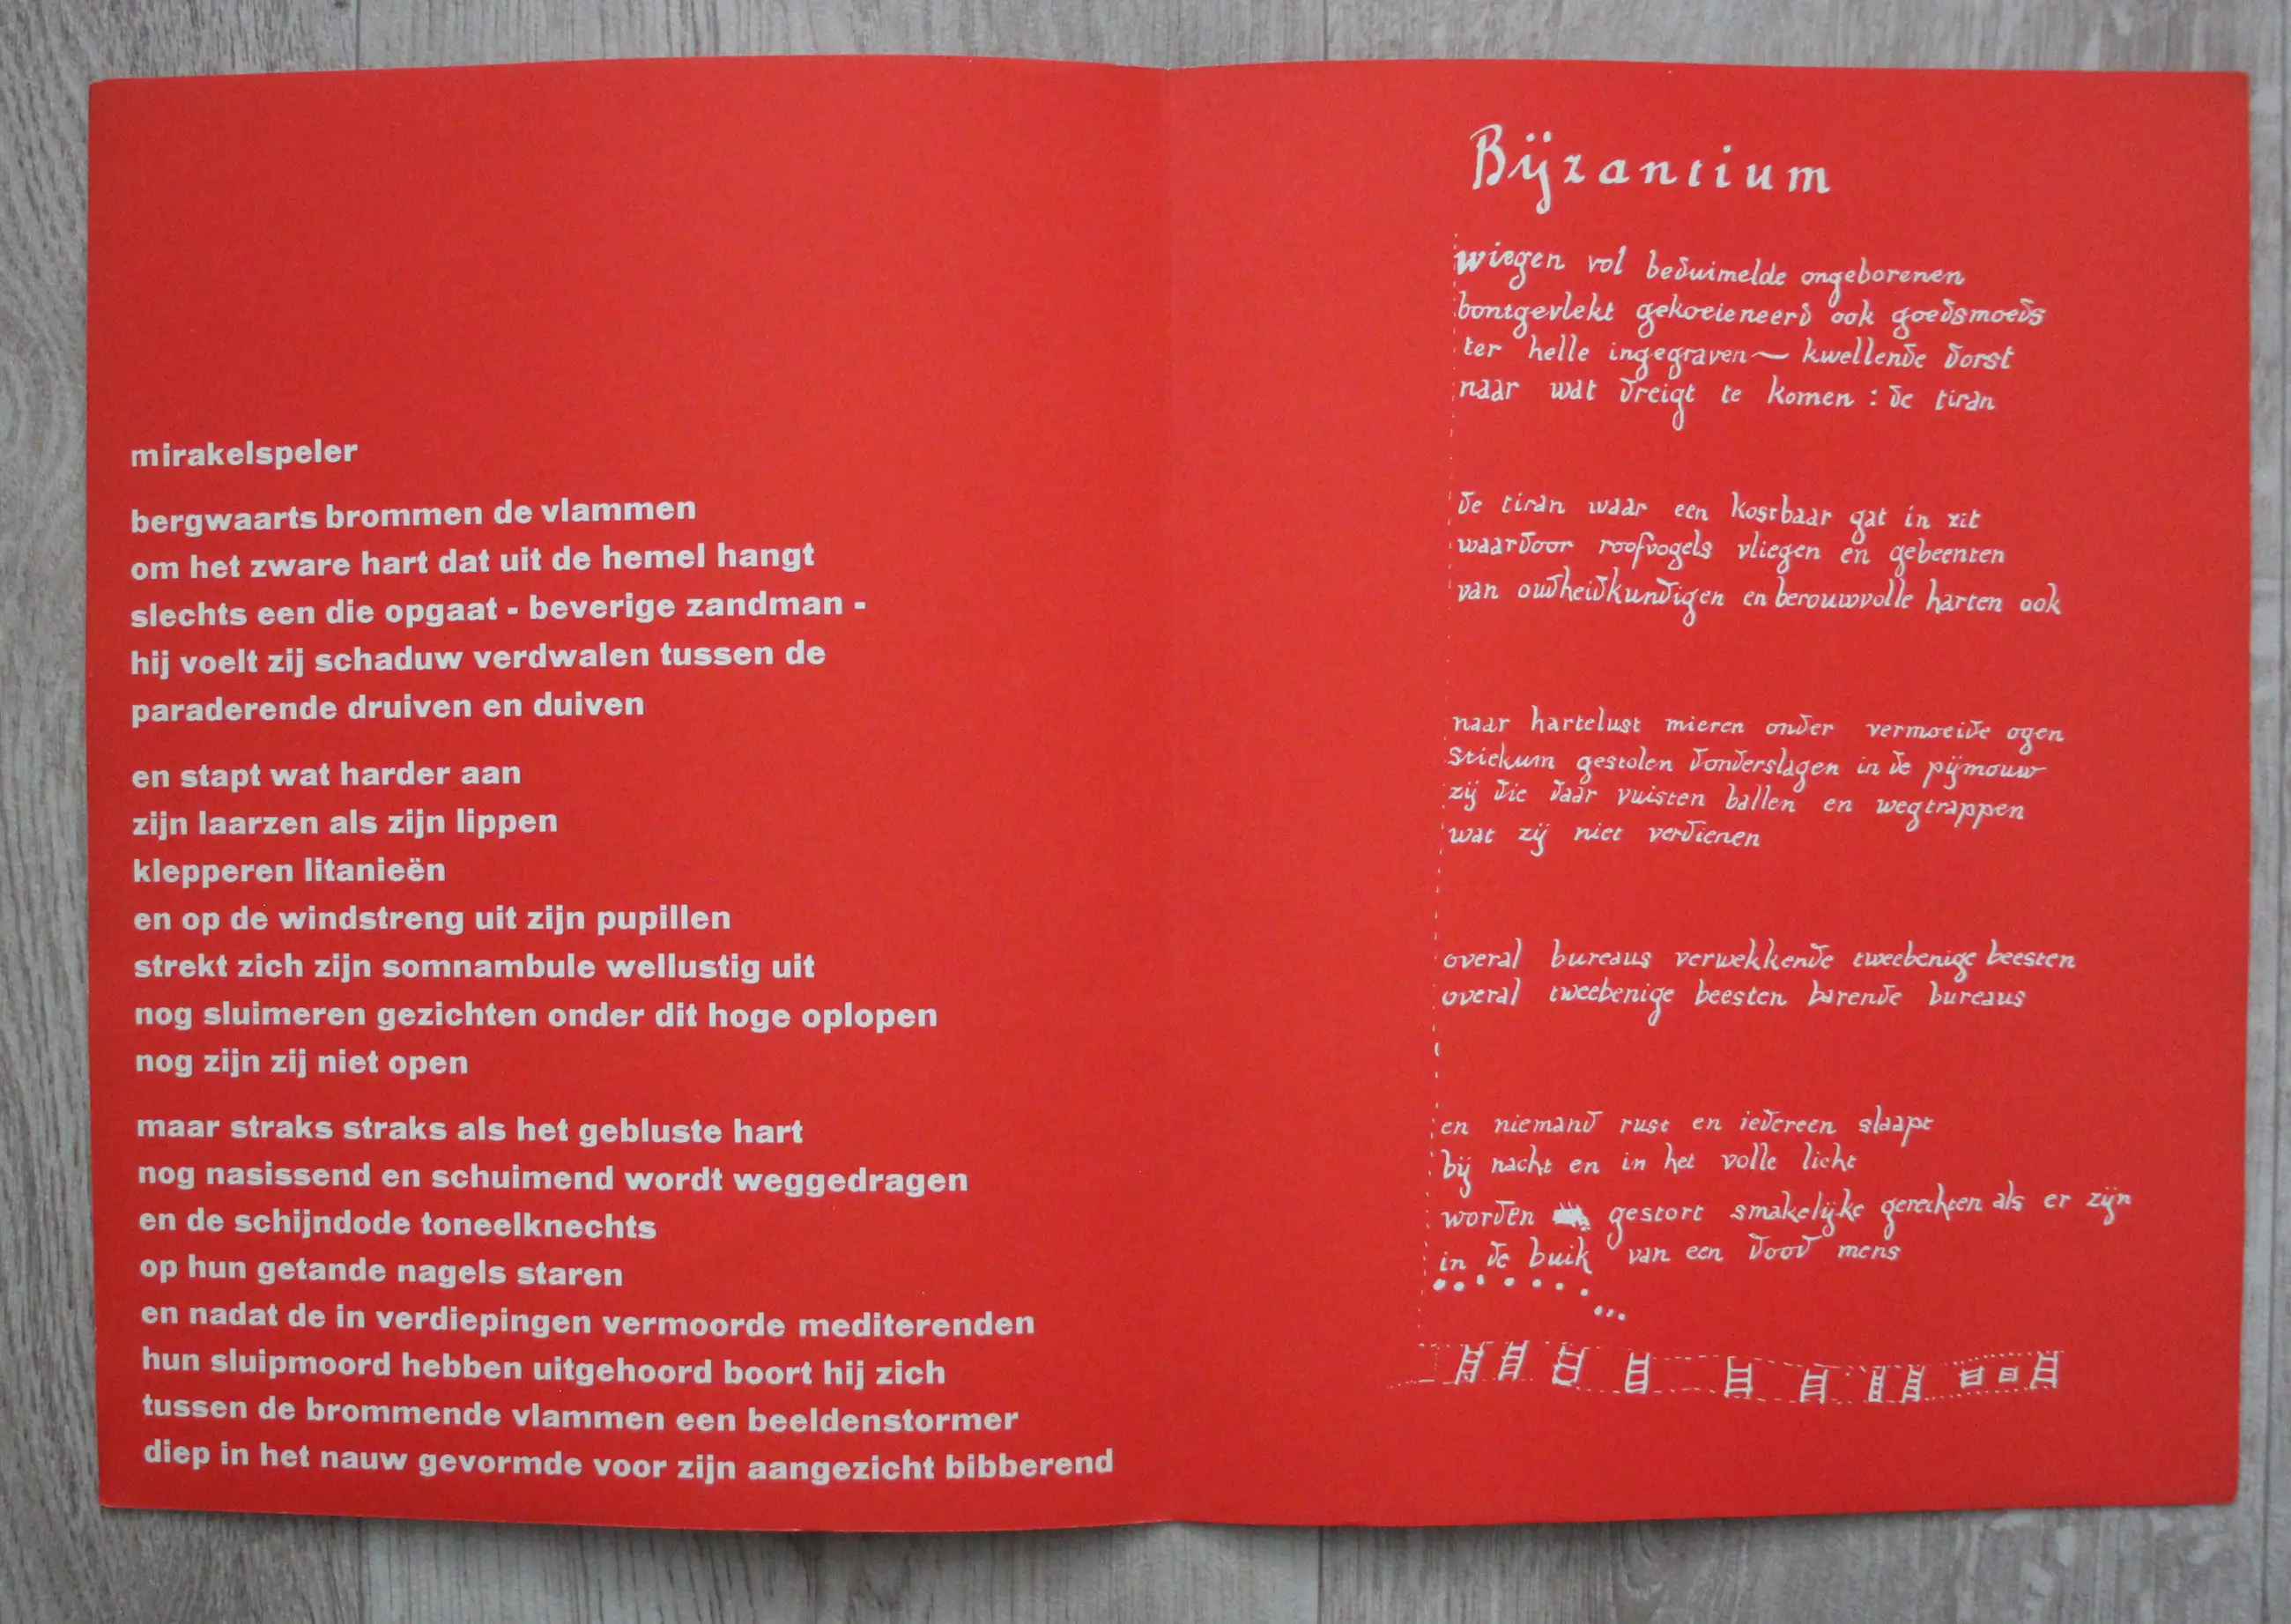 mirakelspeler
bergwaarts brommen de vlammen
om het zware hart dat uit de hemel hangt
slechts een die opgaat - beverige zandman -
hij voelt zij schaduw verdwalen tussen de
paraderende druiven en duiven
en stapt wat harder aan
zijn laarzen als zijn lippen
klepperen litanieën
en op de windstreng uit zijn pupillen
strekt zich zijn somnambule wellustig uit
nog sluimeren gezichten onder dit hoge oplopen
nog zijn zij niet open
maar straks straks als het gebluste hart
nog nasissend en schuimend wordt weggedragen
en de schijndode toneelknechts
op hun getande nagels staren
en nadat de in verdiepingen vermoorde mediterenden
hun sluipmoord hebben uitgehoord boort hij zich
tussen de brommende vlammen een beeldenstormer
diep in het nauw gevormde voor zijn aangezicht bibberend
Bÿzantium
wiegen vol beduimelde ongeborenen
bontgevlekt gekoeieneerd ook goedsmoeds
ter helle ingegraven — kwellende dorst
naar wat dreigt te komen : de tiran
de tiran waar een kostbaar gat in zit
waardoor roofvogels vliegen en gebeenten
van oudheidkundigen en berouwvolle harten ook
naar hartelust mieren onder vermoeide ogen
stiekum gestolen donderslagen in de pijmouw
zij die daar vuisten ballen en wegtrappen
wat zij niet verdienen
overal bureaus verwekkende tweebenige beesten
overal tweebenige beesten barende bureaus
en niemand rust en iedereen slaapt
bij nacht en in het volle licht
worden gestort smakelijke gerechten als er zijn
in de buik van een dood mens